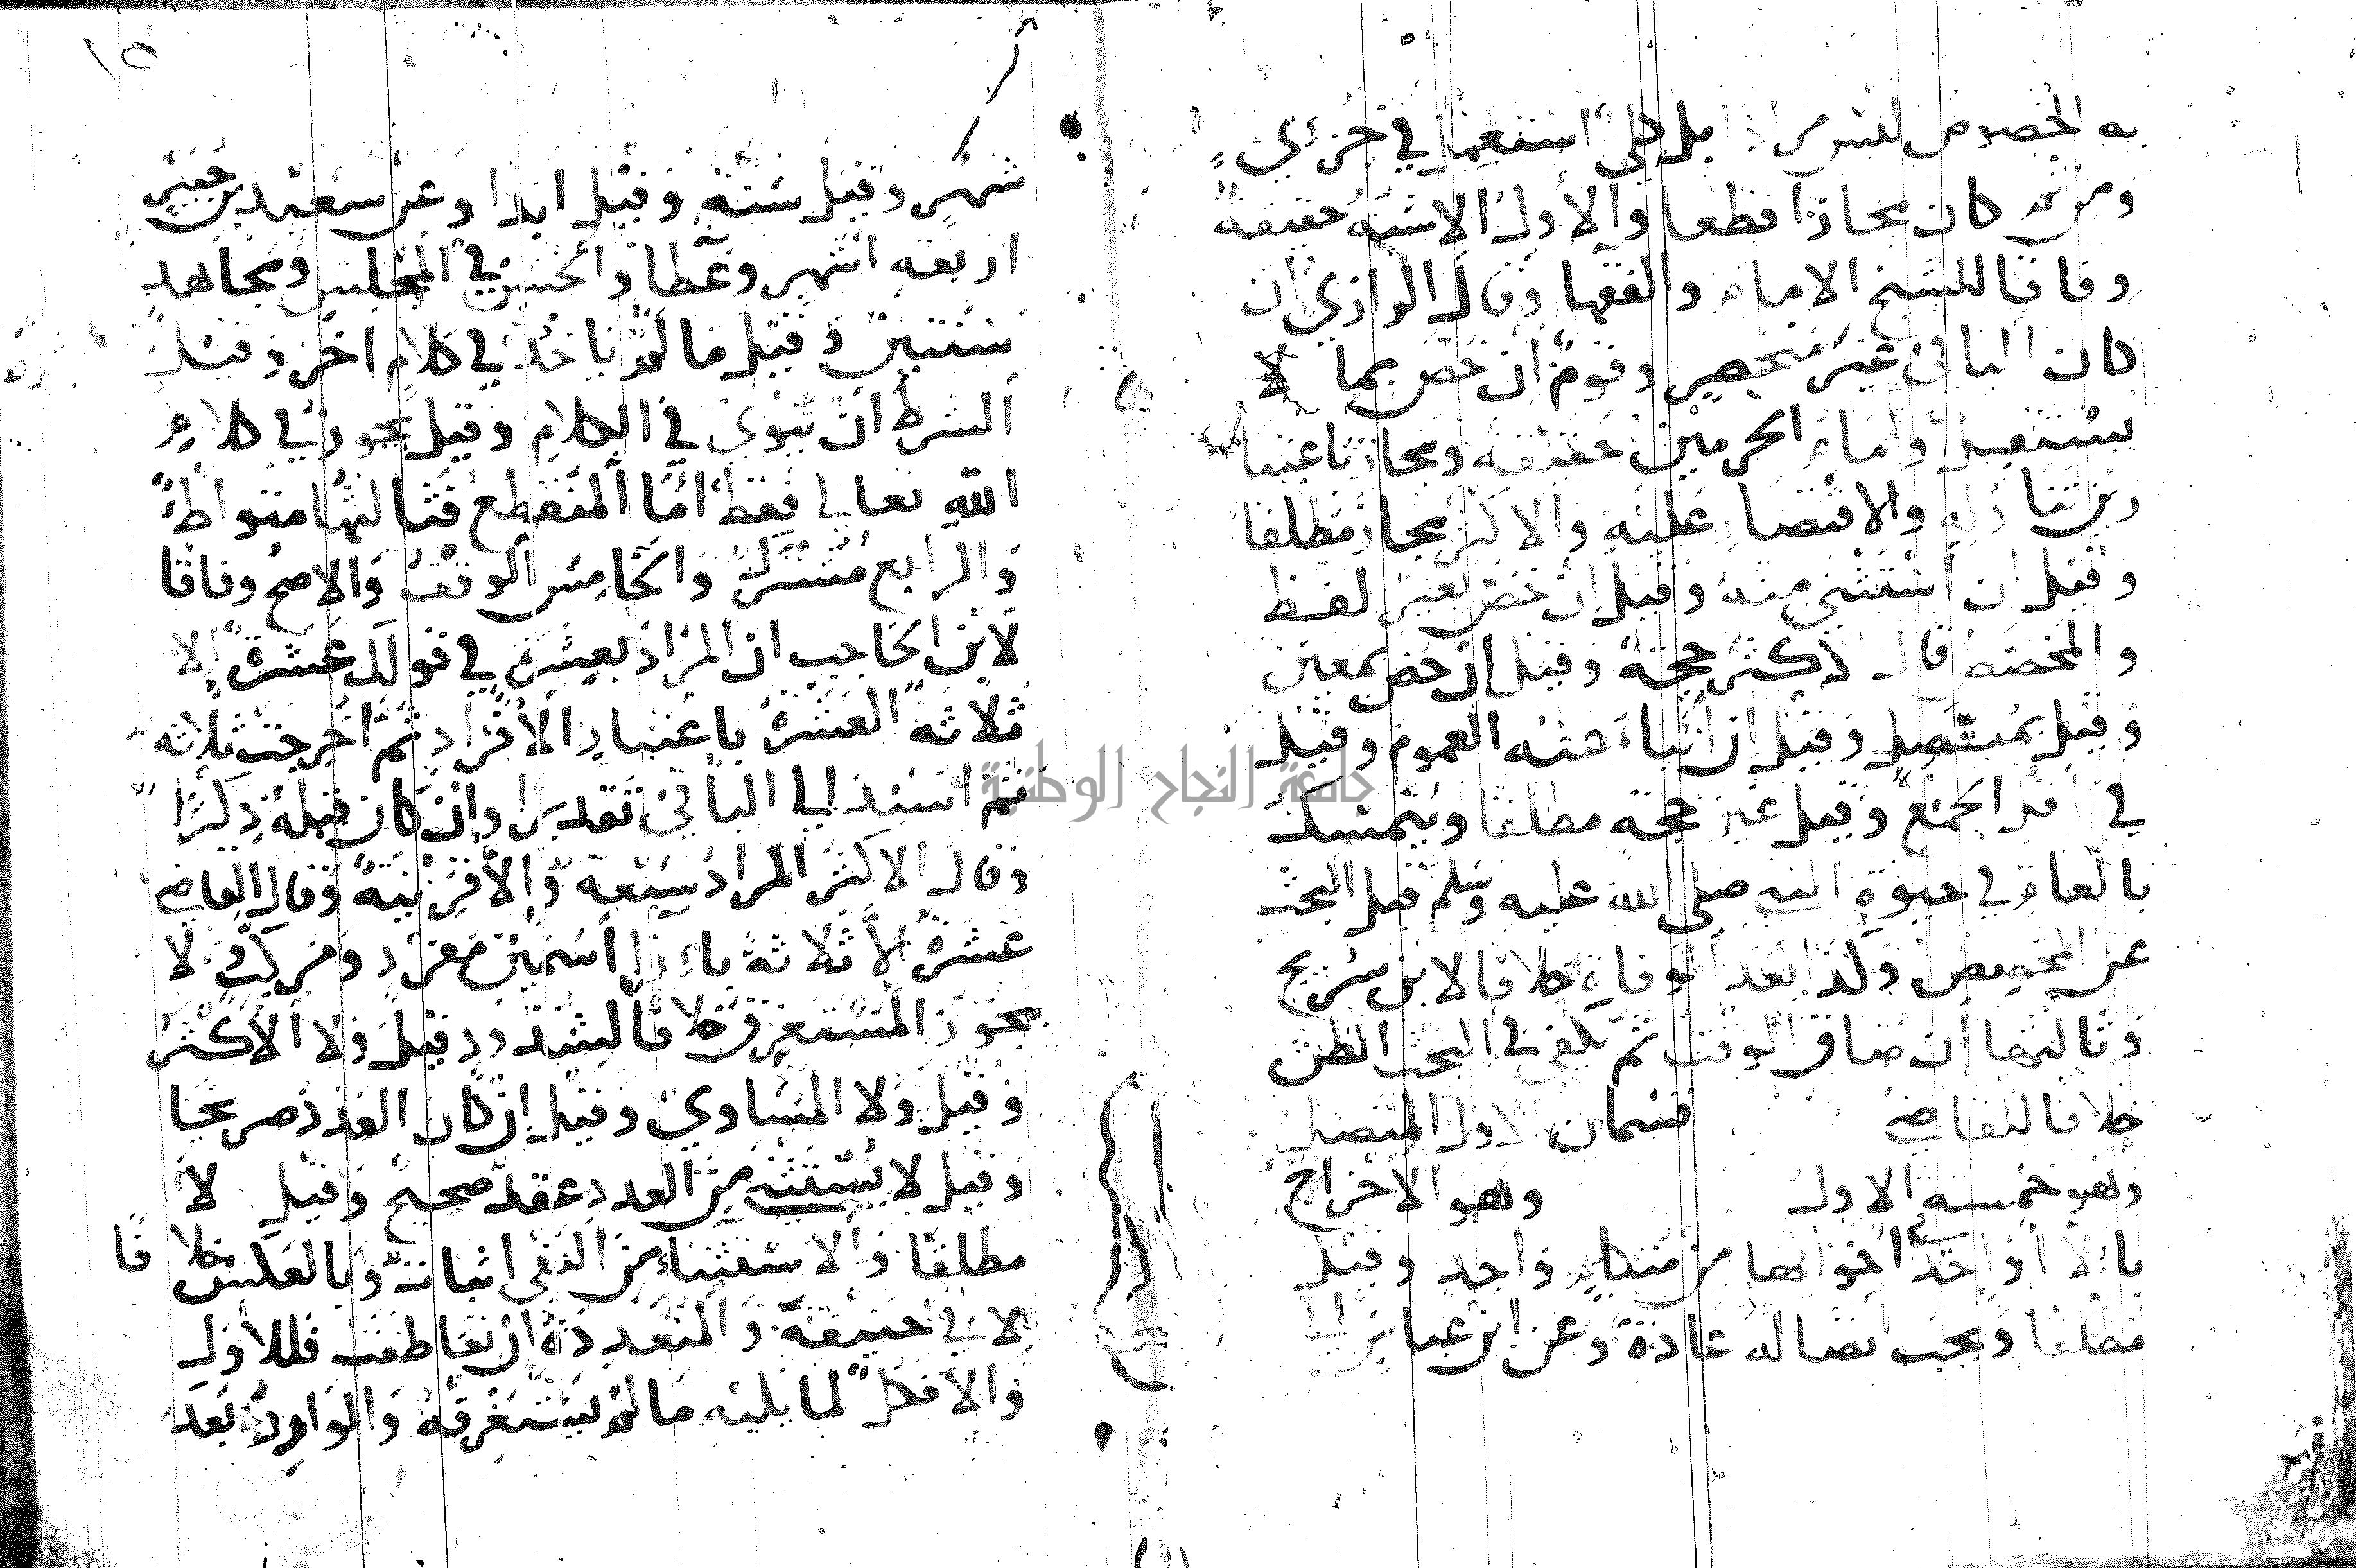 به الخصوص ليس مرادا بل كلي استعمل في جزئي
ومن ثم كان مجازا قطعا والأول الاشبه حقيقة
وفاقا للشيخ الامام والفقها وقال الرازي ان
كان الباقي غير منحصر وقوم ان خص بما لا
يستقل وامام الحرمين حقيقة ومجاز باعتبا
رين تناوله والاقتصار عليه والاكثر مجاز مطلقا
وقيل ان استثني منه وقيل ان خص بغير لفظ
والمخصص قال الاكثر حجة وقيل ان خص بمعين
وقيل بمتصل وقيل ان انباء عنه العموم وقيل
في اقل الجمع وقيل غير حجة مطلقا ويتمسك
بالعام في حيوة النبي صلى الله عليه وسلم قبل البحث
عن المخصص وكذا بعد الوفاة خلافا لابن سريج
وثالثها ان ضاق الوقت ثم يكفي في البحث الظن
خلافا للقاضي قسمان الاول المتصل
وهو خمسة الاول وهو الاخراج
بالا او احدى اخواتها من متكلم واحد وقيل
مطلقا ويجب اتصاله عادة وعن ابن عباس الى
١٥
شهر وقيل سنة وقيل ابدا وعن سعيد بن جبير
اربعة اشهر وعطا والحسن في المجلس ومجاهد
سنتين وقيل ما لم ياخذ في كلام اخر وقيل
الشرط ان ينوى في الكلام وقيل يجوز في كلام
الله تعالى فقط اما المنقطع فثالثها متواطئ
والرابع مشترك والخامس الوقف والاصح وفاقا
لابن الحاجب ان المراد بعشرة في قولك عشرة الا
ثلاثة العشرة باعتبار الافراد ثم اخرجت ثلاثة
ثم اسند الى الباقي تقديرا وان كان قبله ذكرا
وقال الاكثر المراد سبعة والا قرينة وقال القاضي
عشرة الا ثلاثة بازا اسمين مفرد ومركب ولا
يجوز المستغرق خلافا لشذوذ وقيل ولا الاكثر
وقيل ولا المساوي وقيل ان كان العدد صريحا
وقيل لا يستثنى من العدد عقد صحيح وقيل لا
مطلقا والاستثناء من النفي اثبات وبالعكس خلافا
لابي حنيفة والمتعددة ان تعاطفت فللاول
والا فكل لما يليه ما لم يستغرقه والوارد بعد
جامعة النجاح الوطنية